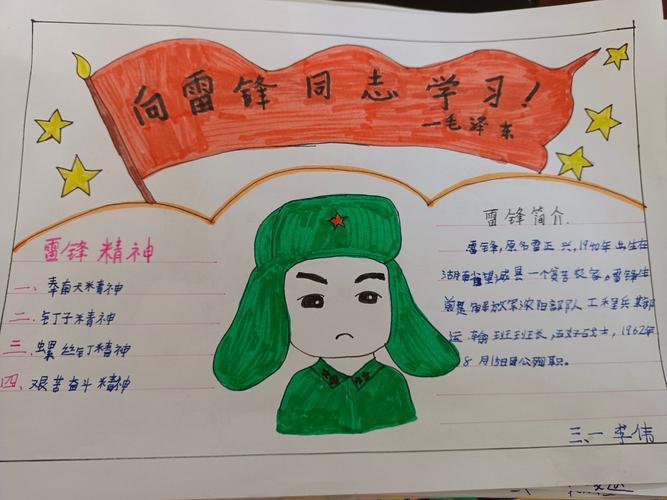 向雷锋同志学习！
一毛泽东
雷锋精神
一、奉献精神
二、钉子精神
三、螺丝钉精神
四、艰苦奋斗精神
雷锋简介
雷锋，原名雷正兴，1940年出生在
湖南省望城县一个贫苦农家。雷锋生
前是解放军沈阳部队工程兵某
运输班班长，五好战士，1962年
8月15日因公殉职。
三、一 李伟